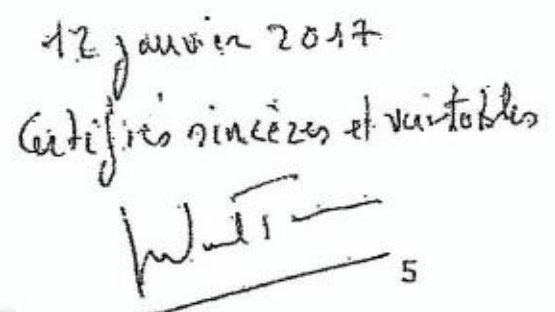 12 janvier 2017
Certifiés sincères et véritables
5